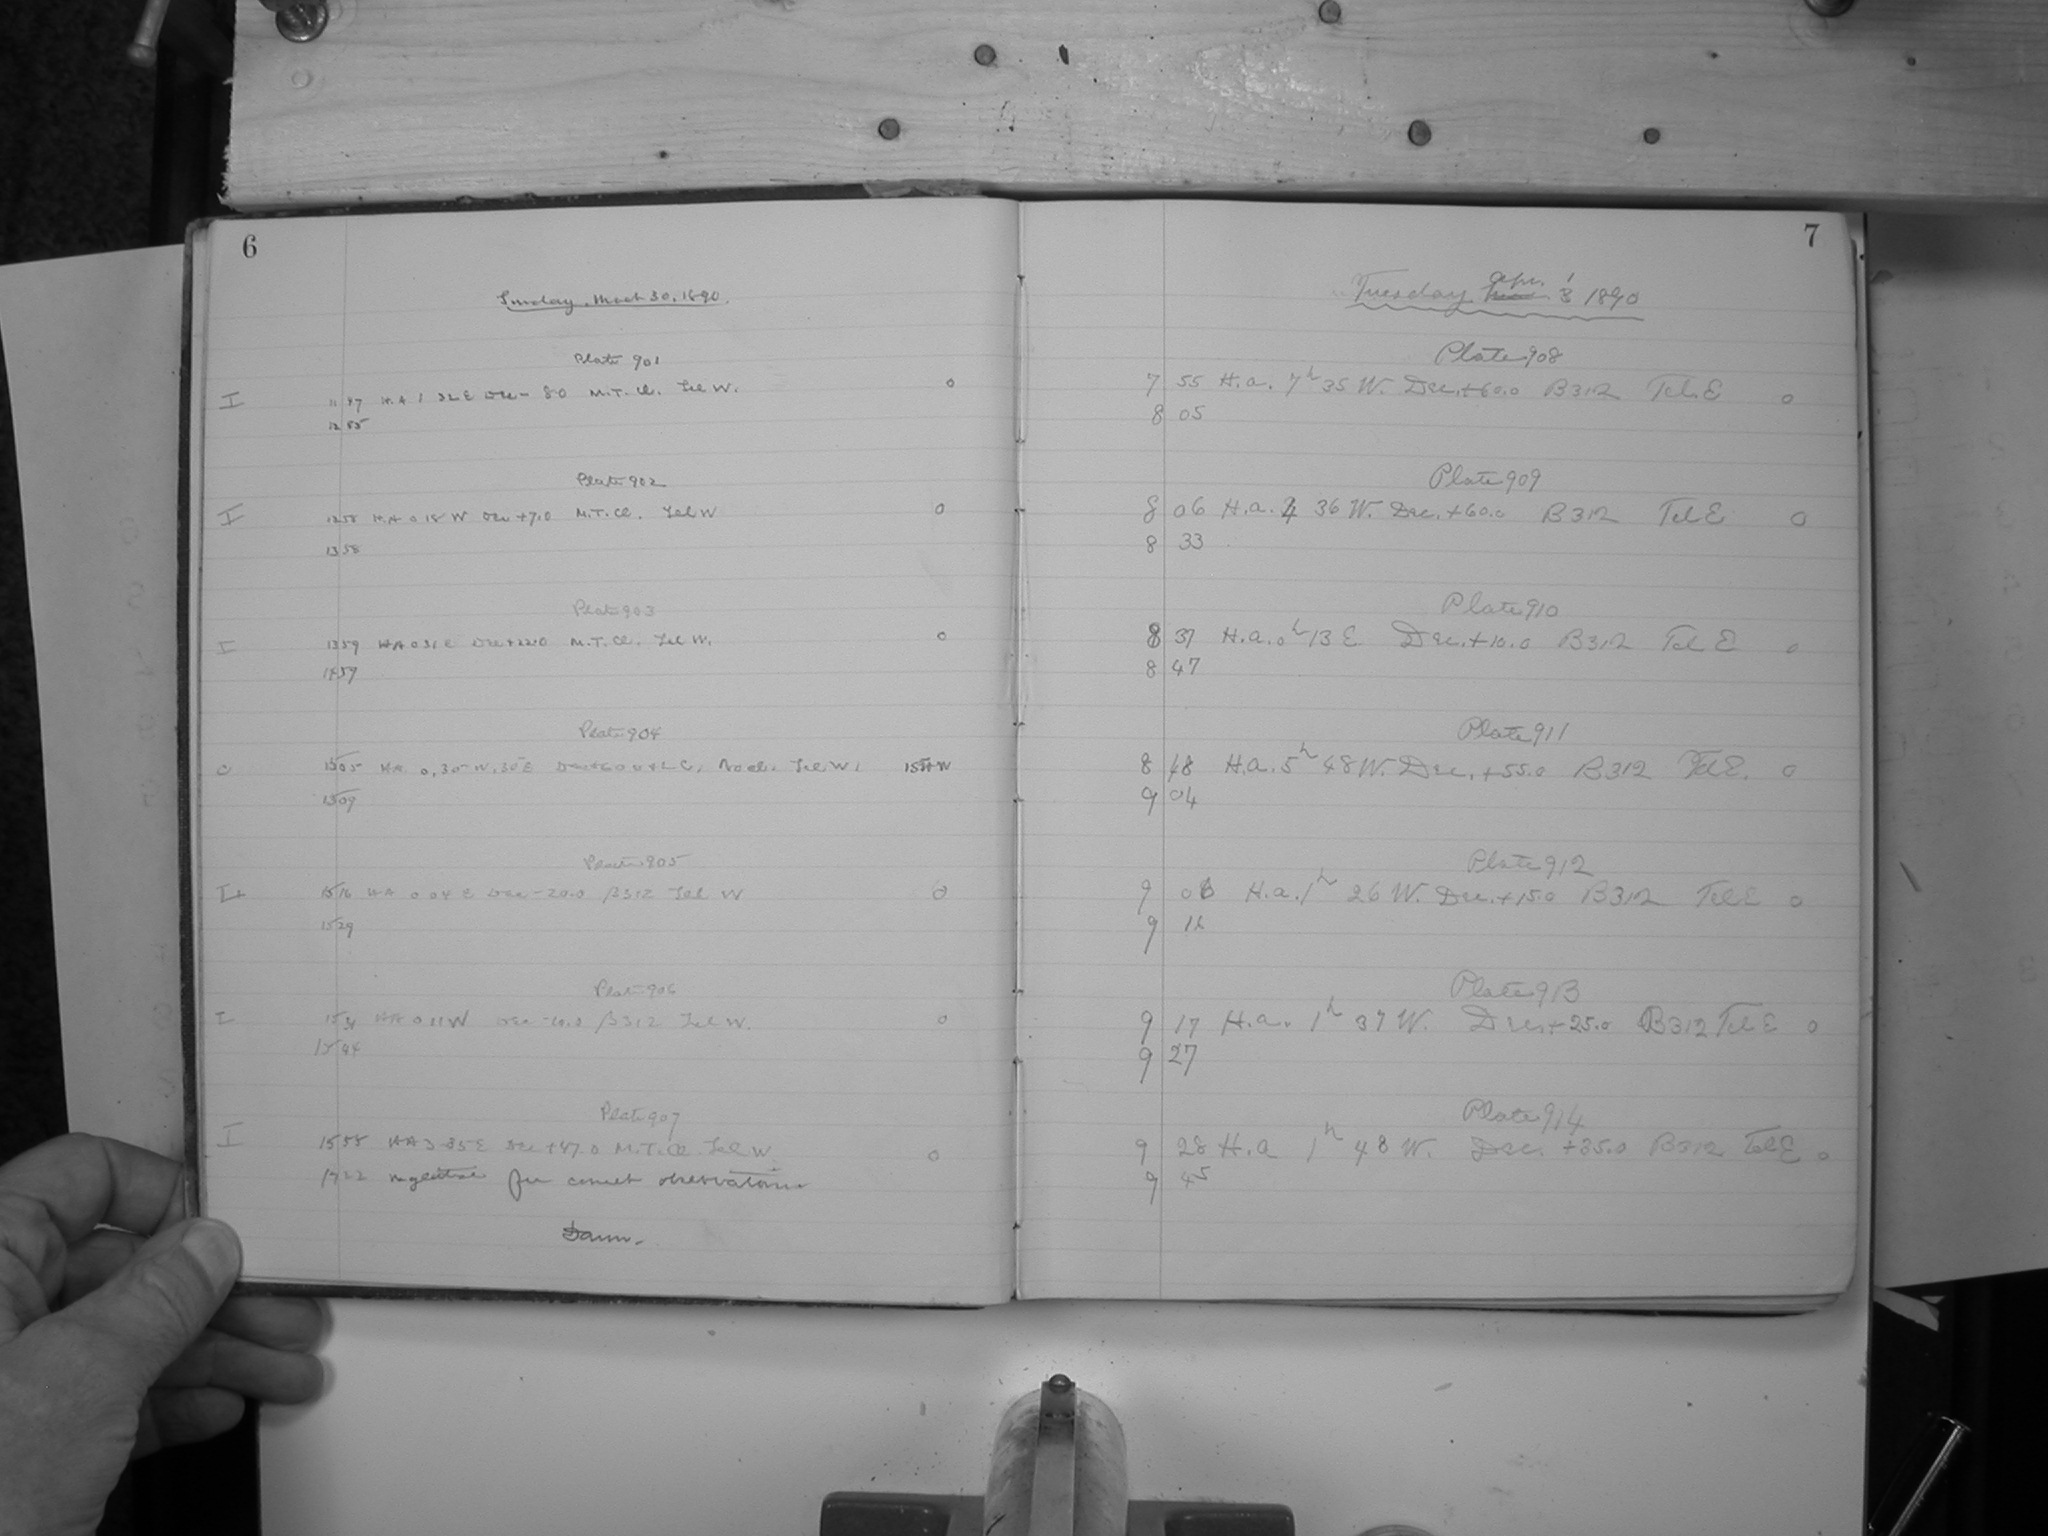 6
Sunday, March 30, 1890.
Plate 901
I 11 47 H.A. 1 32 E Dec - 8.0 M.T. Cl. Tel W. 0
12
Plate 902
I 12 58 H.A. 0 18 W Dec +7.0 M.T. Cl. Tel W 0
13 58
Plate 903
I 13 59 H.A. 0 31 E Dec +22.0 M.T. Cl. Tel W. 0
14 59
Plate 904
0 15 05 H.A. 0, 30 W, 30 E Tel W.
15 09
Plate 905
15 16 H.A. 0 04 E Dec - 20.0 B312 Tel W 0
15 29
Plate 906
I 15 31 H.A. 0 11 W Dec -10.0 B312 Tel W. 0
15 44
Plate 907
I 15 55 H.A. 3 35 E Dec +47.0 M.T. Cl. Tel W. 0
17 22 for comet observations
Dawn.
7
Tuesday Apr. 1 1890
Plate 908
7 55 H.a. 7h 35 W. Dec. +60.0 B312 Tel. E 0
8 05
Plate 909
8 06 H.a. 4 36 W. Dec. +60.0 B312 Tel E 0
8 33
Plate 910
8 37 H.a. 0h 13 E Dec. +10.0 B312 Tel E 0
8 47
Plate 911
8 48 H.a. 5h 48 W. Dec. +55.0 B312 Tel E. 0
9 04
Plate 912
9 06 H.a. 1h 26 W. Dec. +15.0 B312 Tel E 0
9 16
Plate 913
9 17 H.a. 1h 37 W. Dec. +25.0 B312 Tel E 0
9 27
Plate 914
9 28 H.a 1h 48 W. Dec. +35.0 B312 Tel E 0
9 45